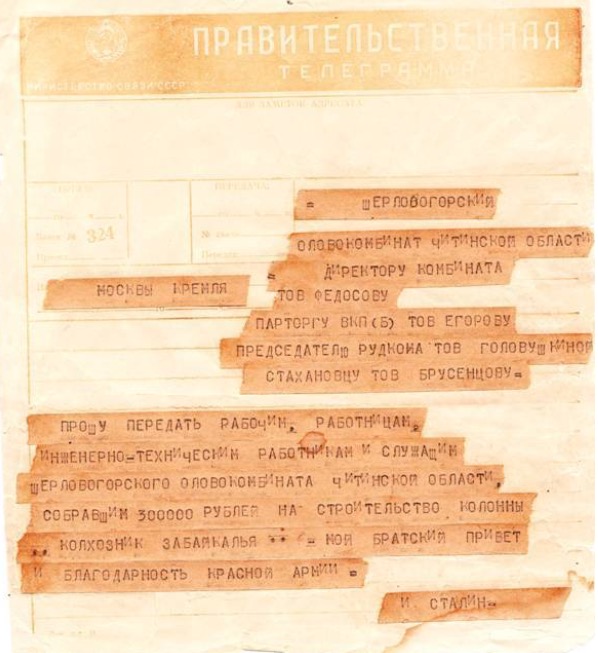 ПРАВИТЕЛЬСТВЕННАЯ
ТЕЛЕГРАММА
МИНИСТЕРСТВО СВЯЗИ СССР
ДЛЯ ЗАМЕТОК АДРЕСАТА
ПЕРЕДАЧА:
324
= ШЕРЛОВОГОРСКИЙ
ОЛОВОКОМБИНАТ ЧИТИНСКОЙ ОБЛАСТИ
= ДИРЕКТОРУ КОМБИНАТА
МОСКВЫ КРЕМЛЯ
ТОВ ФЕДОСОВУ
ПАРТОРГУ ВКП(Б) ТОВ ЕГОРОВУ
ПРЕДСЕДАТЕЛЮ РУДКОМА ТОВ ГОЛОВУШКИНОЙ
СТАХАНОВЦУ ТОВ БРУСЕНЦОВУ=
ПРОШУ ПЕРЕДАТЬ РАБОЧИМ, РАБОТНИЦАМ,
ИНЖЕНЕРНО=ТЕХНИЧЕСКИМ РАБОТНИКАМ И СЛУЖАЩИМ
ШЕРЛОВОГОРСКОГО ОЛОВОКОМБИНАТА ЧИТИНСКОЙ ОБЛАСТИ,
СОБРАВШИМ 300000 РУБЛЕЙ НА СТРОИТЕЛЬСТВО КОЛОННЫ
,, КОЛХОЗНИК ЗАБАЙКАЛЬЯ '' = МОЙ БРАТСКИЙ ПРИВЕТ
И БЛАГОДАРНОСТЬ КРАСНОЙ АРМИИ =
И СТАЛИН=